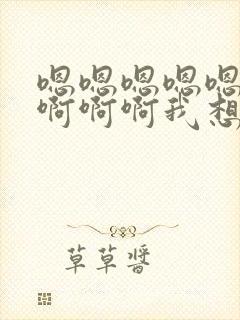 嗯嗯嗯嗯嗯
啊啊啊我想
草草酱